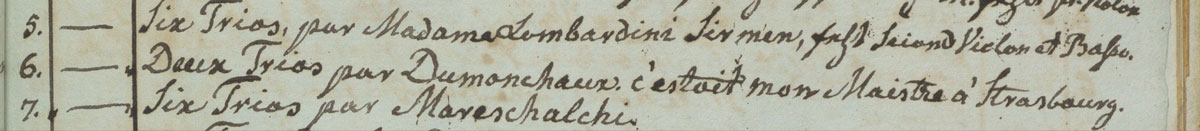 5. — Six Trios, par Madame Lombardini Sirmen, Second Violon et Basso.
6. — " Deux Trios par Dumonchaux. c'estoit mon Maistre à Strasbourg.
7. " — " Six Trios par Mareschalchi.